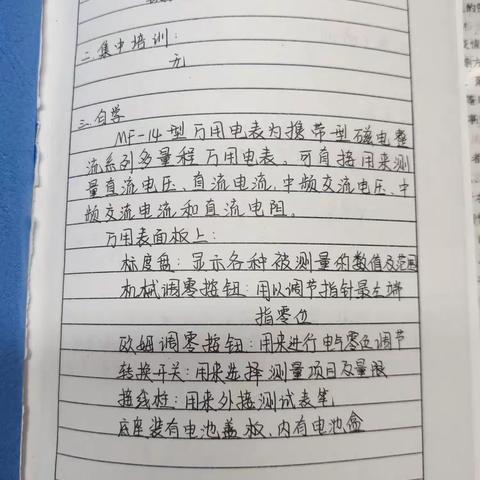 二.集中培训:
无
三.自学
MF-14型万用电表为携带型磁电整
流系列多量程万用电表.可直接用来测
量直流电压、直流电流.中频交流电压、中
频交流电流和直流电阻。
万用表面板上:
标度盘:显示各种被测量的数值及范围
机械调零按钮:用以调节指针最左端
指零位
欧姆调零按钮:用来进行电与零位调节
转换开关:用来选择测量项目及量限
接线柱:用来外接测试表笔
底座装有电池盖板.内有电池盒